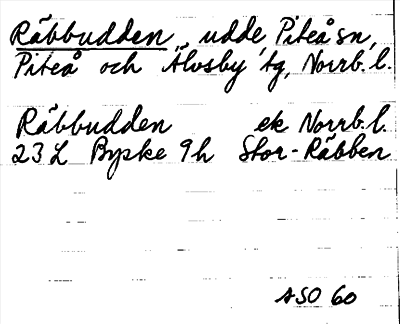 Räbbudden, udde Piteå sn,
Piteå och Älvsby tg, Norrb. l.
Räbbudden ek Norrb. l.
23L Byske 9h Stor-Räbben
ASO 60